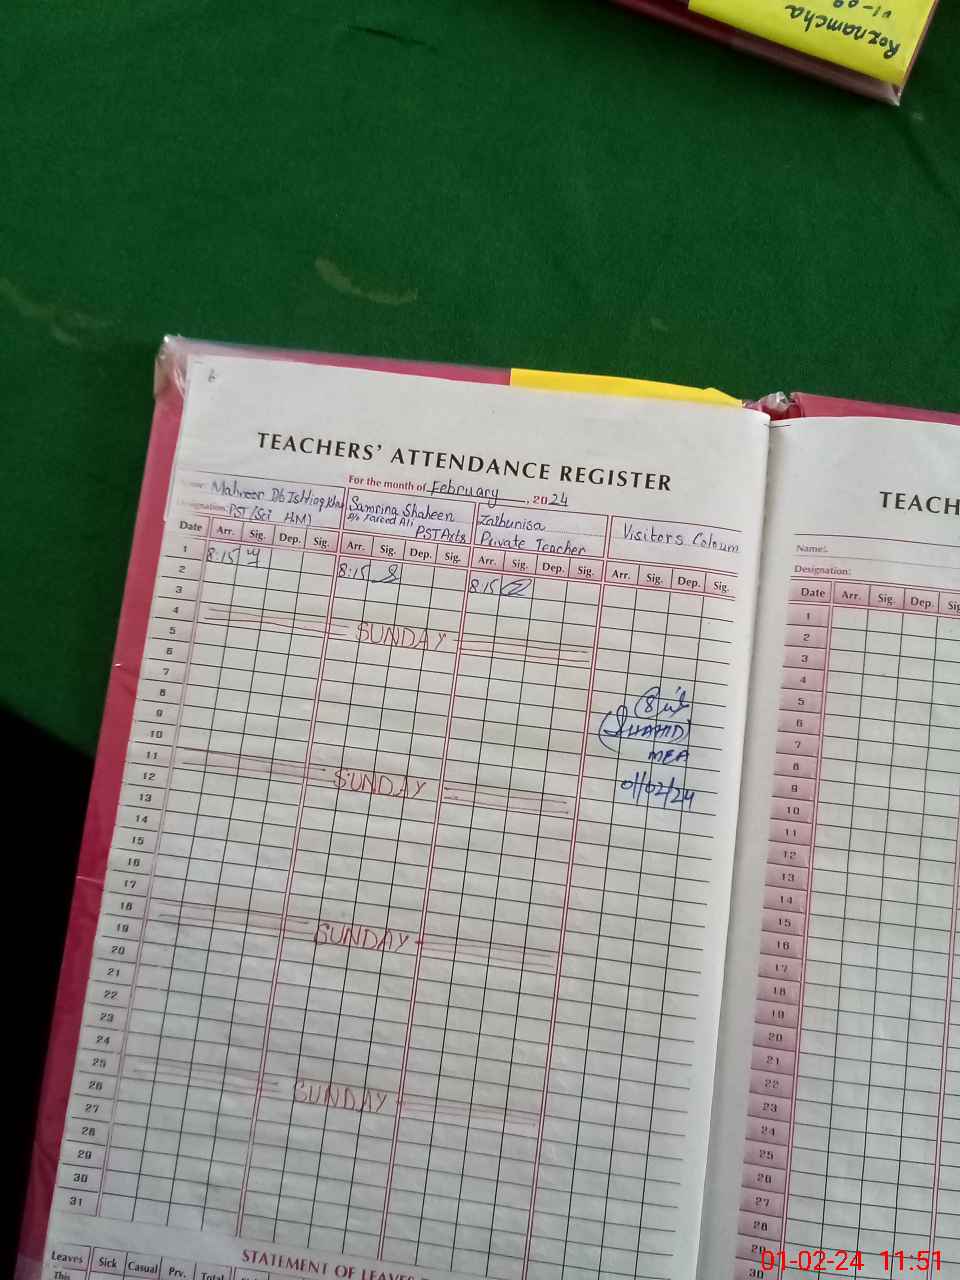 Roznamcha
6
TEACHERS' ATTENDANCE REGISTER
For the month of February, 2024
Name: Mahnoor D/o Ishtiaq Khan
Designation: PST (Sci HM)
Samrina Shaheen
D/o Fareed Ali
PST Arts
Zaibunisa
Private Teacher
Visitors Coloum
Date Arr. Sig. Dep. Sig. Arr. Sig. Dep. Sig. Arr. Sig. Dep. Sig. Arr. Sig. Dep. Sig.
1 8:15 8:15 8:15
2
3
4 SUNDAY
5
6
7
8
9
10
11 SUNDAY
12
13
14
15
16
17
18 SUNDAY
19
20
21
22
23
24
25 SUNDAY
26
27
28
29
30
31
(SHAHID)
MEA
01/02/24
STATEMENT OF LEAVES
Leaves Sick Casual Prv. Total
This
TEACH
Name:
Designation:
Date Arr. Sig. Dep.
1
2
3
4
5
6
7
8
9
10
11
12
13
14
15
16
17
18
19
20
21
22
23
24
25
26
27
28
29
30
01-02-24 11:51